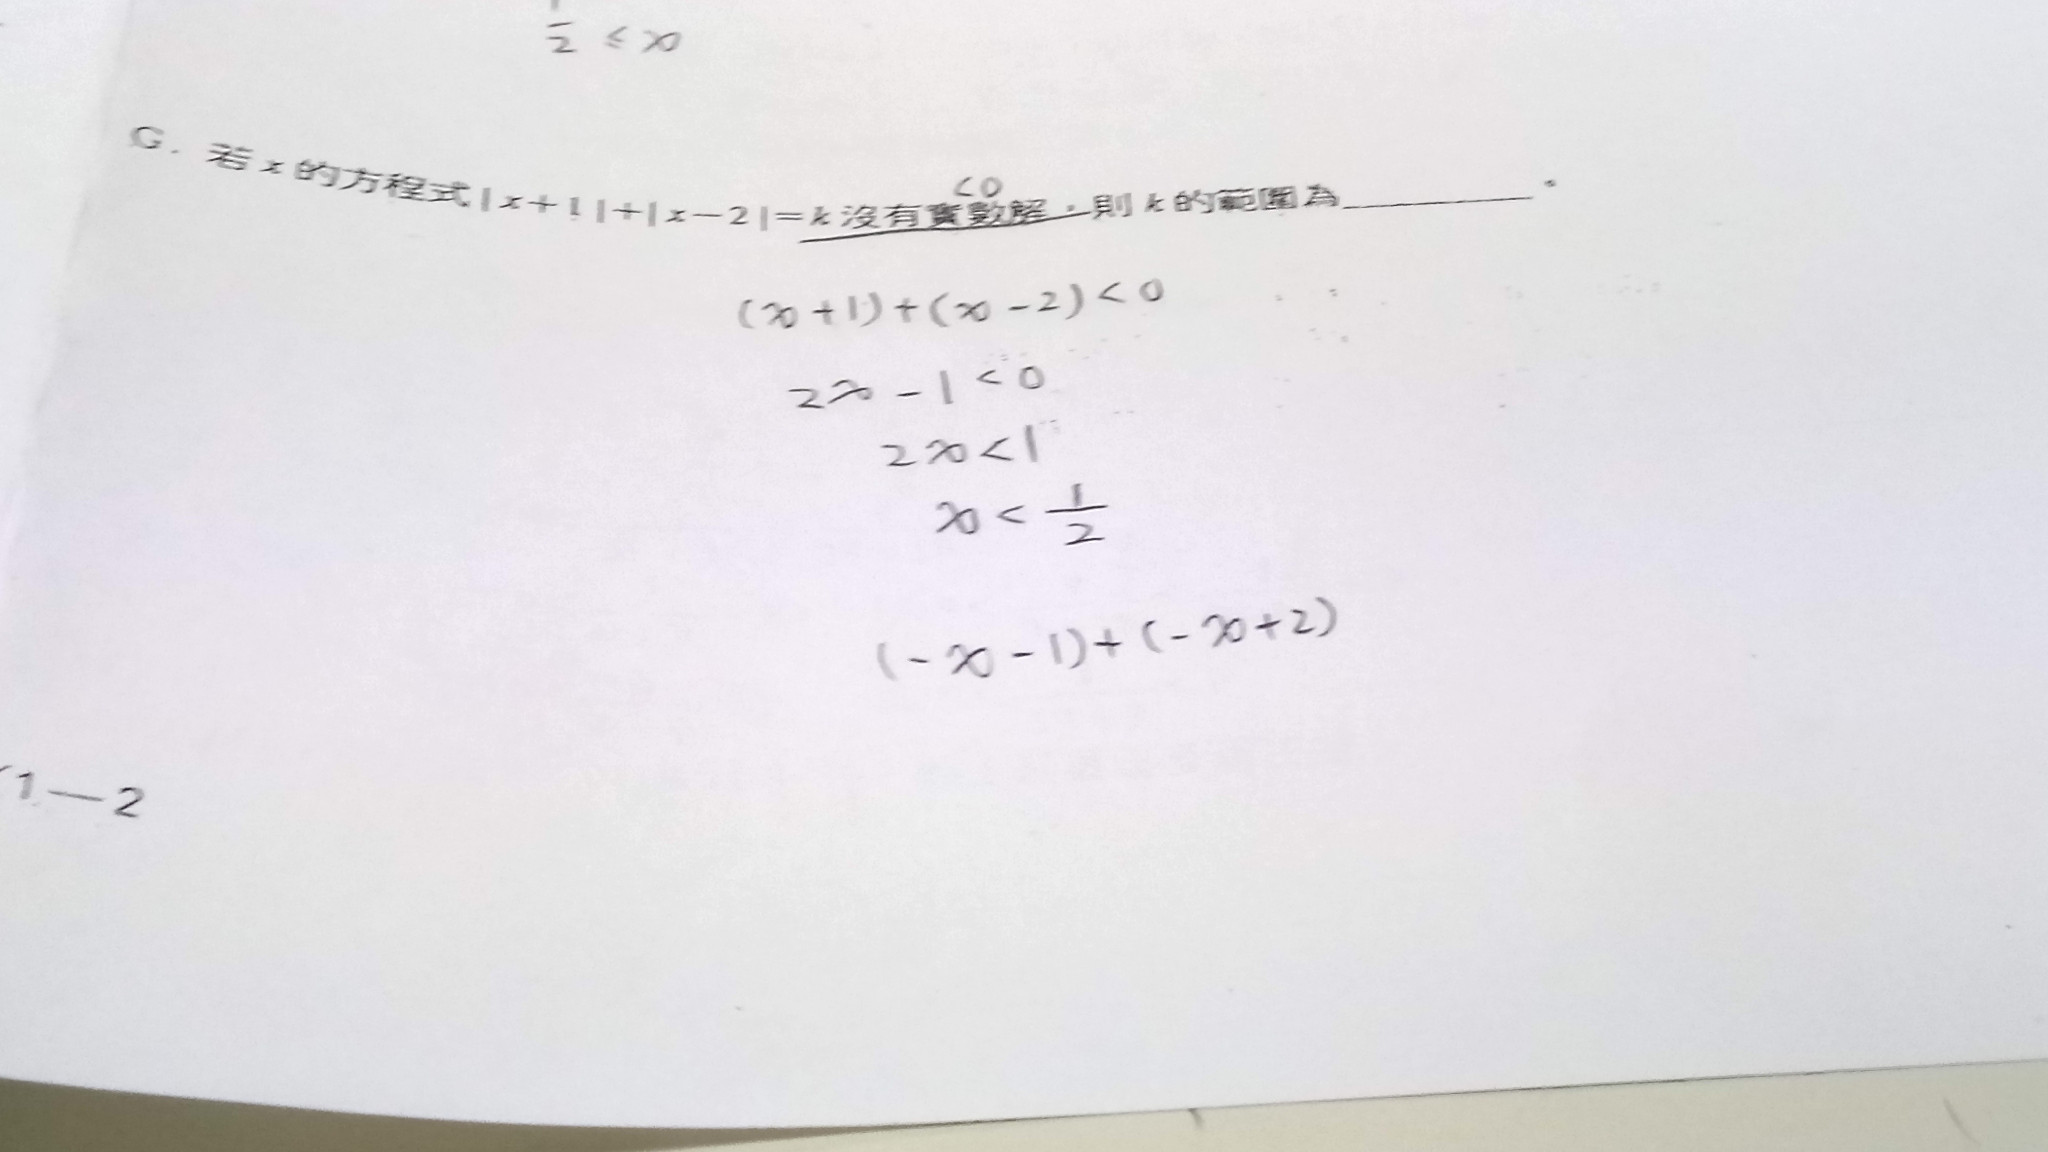 1/2 ≤ x
G. 若 x 的方程式 |x+1|+|x-2|=k 沒有實數解,則 k 的範圍為________。
<0
(x+1)+(x-2)<0
2x-1<0
2x<1
x<1/2
(-x-1)+(-x+2)
1-2